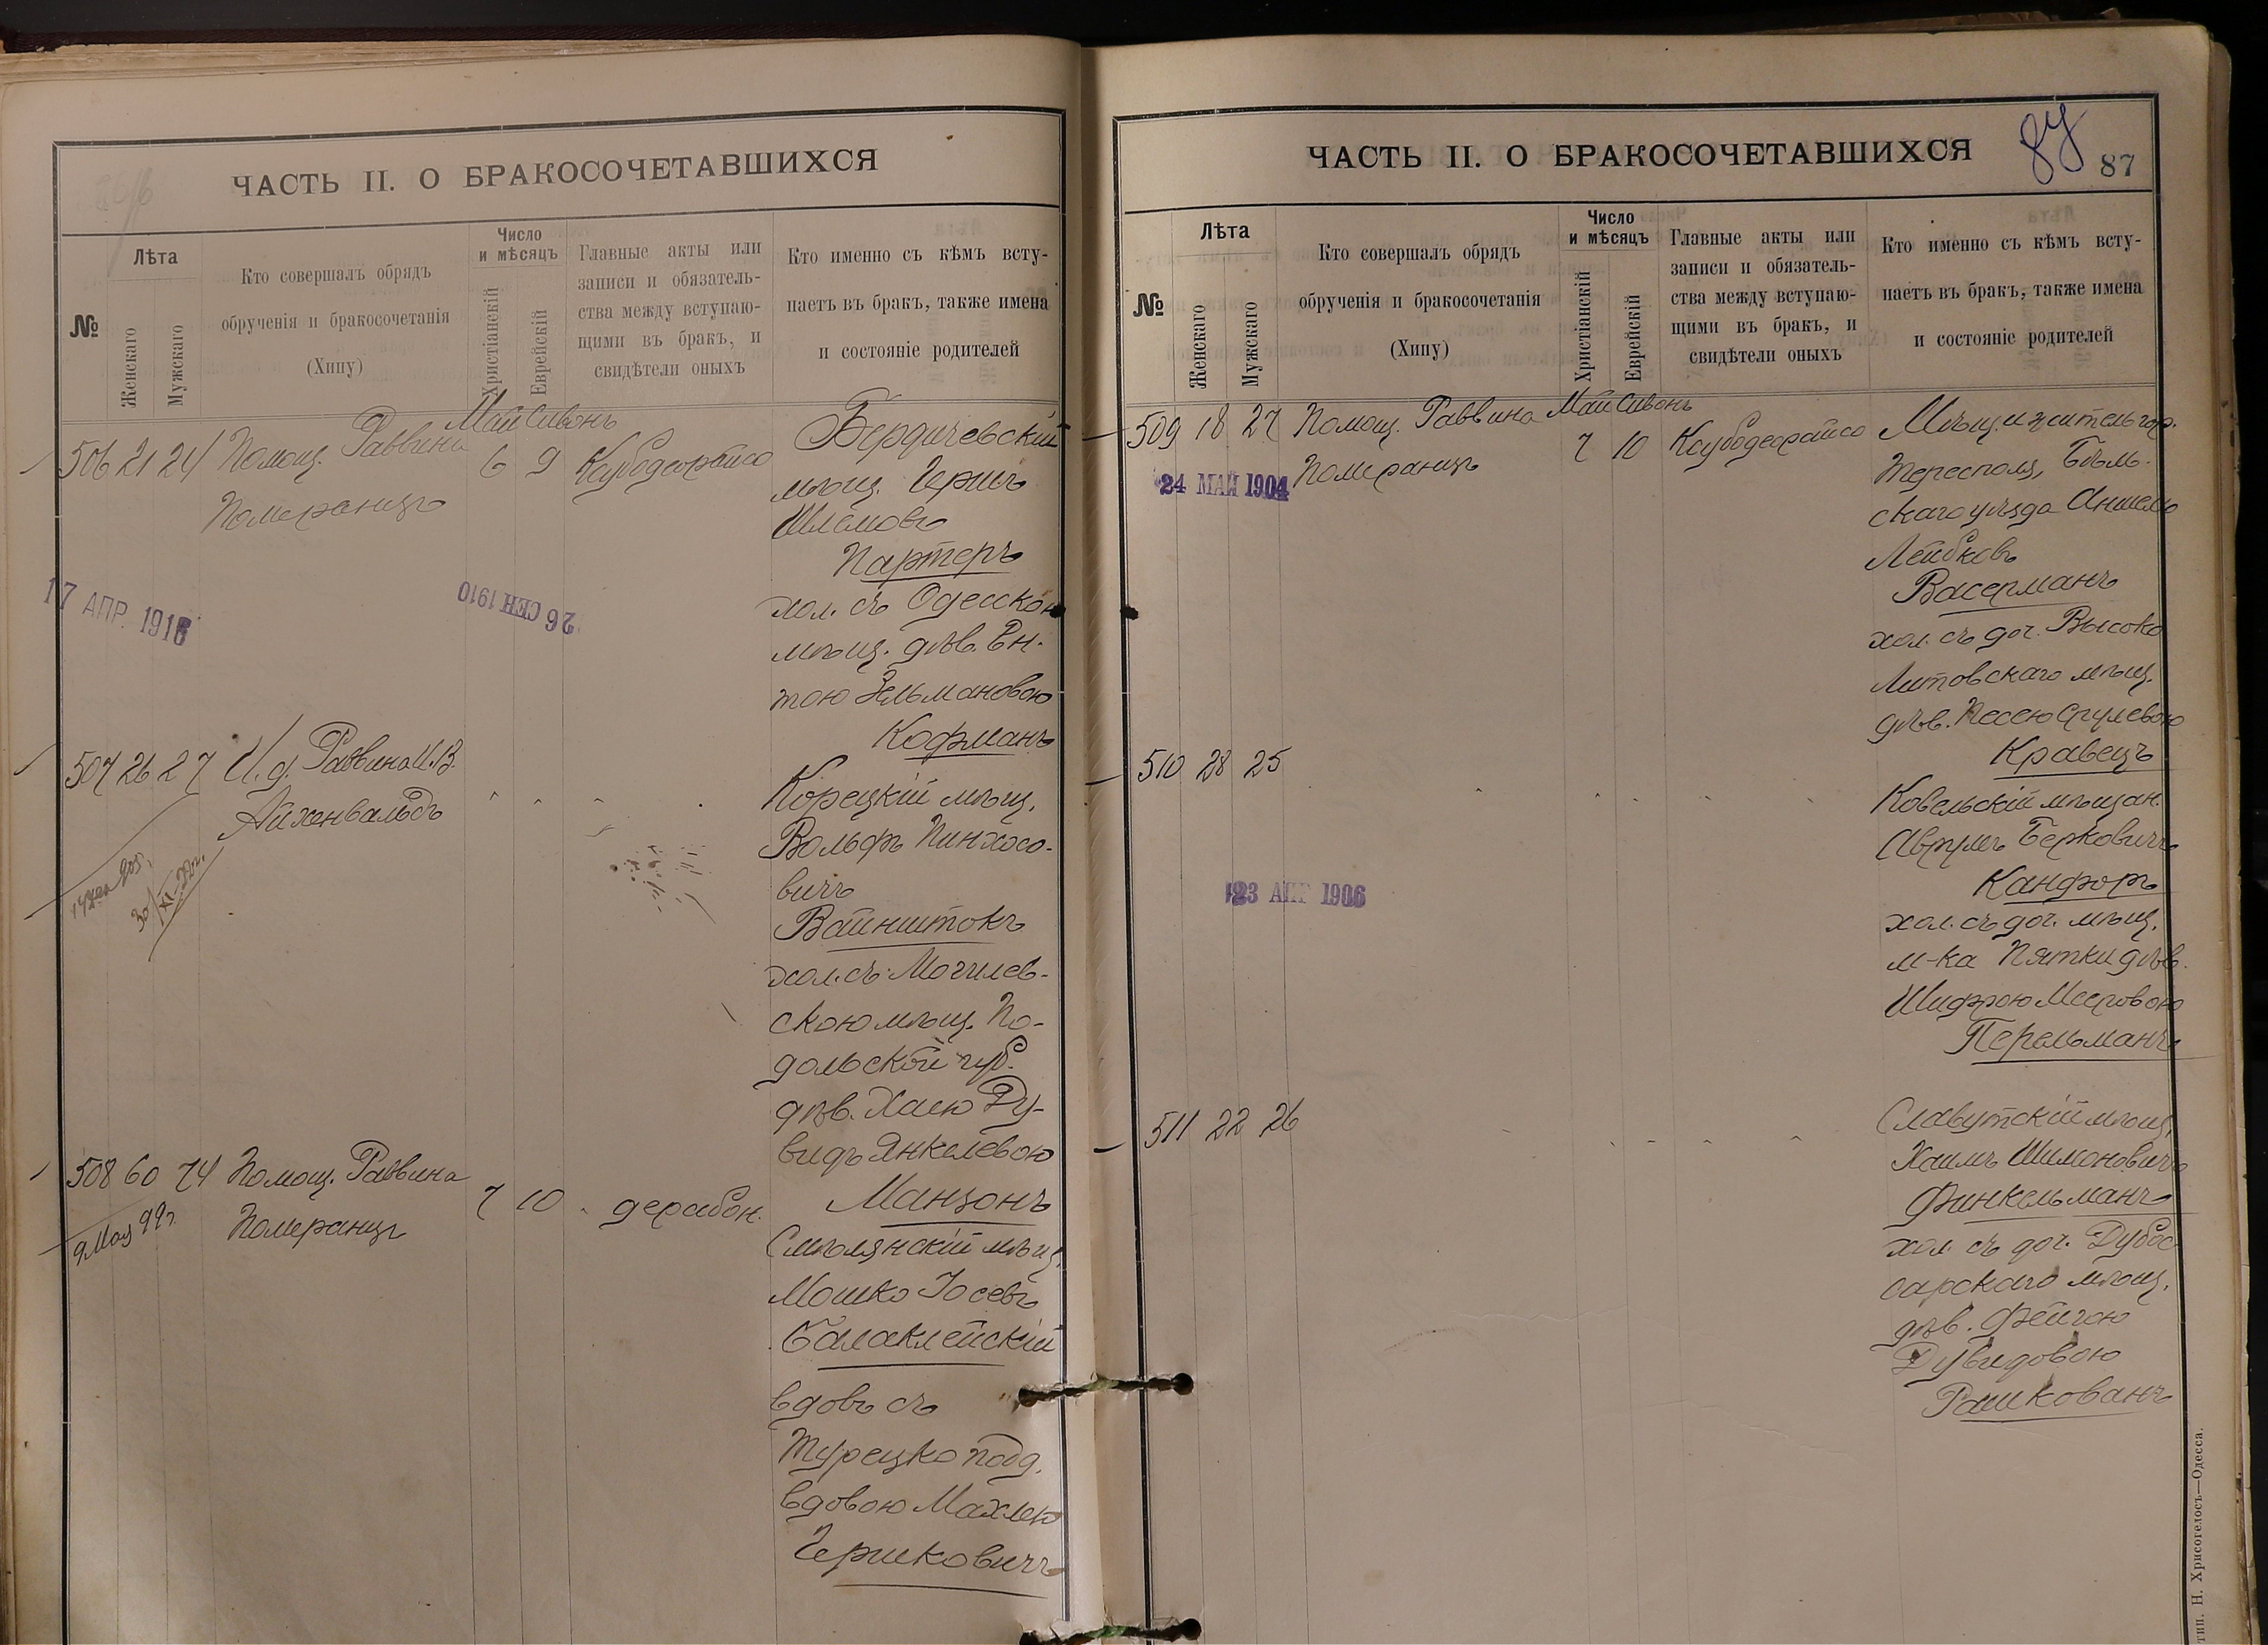 ЧАСТЬ II. О БРАКОСОЧЕТАВШИХСЯ
№
Лѣта
Женскаго
Мужскаго
Кто совершалъ обрядъ
обрученія и бракосочетанія
(Хипу)
Число
и мѣсяцъ
Христіанскій
Еврейскій
Главные акты или
записи и обязатель-
ства между вступаю-
щими въ бракъ, и
свидѣтели оныхъ
Кто именно съ кѣмъ всту-
паетъ въ бракъ, также имена
и состояніе родителей
Май Сивонъ
506 21 24 Помощ. Раввина 6 9
Померанцъ
Бердичевскій
мѣщ. Гершъ
Шлемовъ
Партеръ
хол. съ Одесскою
мѣщ. дѣв. Ен-
тою Зельмановою
Кофманъ
17 АПР. 191
26 СЕН 1910
507 26 27 И. д. Раввина И.З.
Айхенвальдъ
30/XI-20г.
Корецкій мѣщ.
Вольфъ Пинхосо-
вичъ
Вайнштокъ
хол. съ Могилев-
скою мѣщ. По-
дольской губ.
дѣв. Хаею Ду-
видъ Янкелевою
Манзонъ
508 60 74 Помощ. Раввина 7 10 " дерабон.
Померанцъ
9 Мая 99г.
Смѣлянскій мѣщ.
Мошко Іосевъ
Балаклейскій
вдовъ съ
Турецко подд.
вдовою Махлею
Гершковичъ
ЧАСТЬ II. О БРАКОСОЧЕТАВШИХСЯ
87
87
№
Лѣта
Женскаго
Мужскаго
Кто совершалъ обрядъ
обрученія и бракосочетанія
(Хипу)
Число
и мѣсяцъ
Христіанскій
Еврейскій
Главные акты или
записи и обязатель-
ства между вступаю-
щими въ бракъ, и
свидѣтели оныхъ
Кто именно съ кѣмъ всту-
паетъ въ бракъ, также имена
и состояніе родителей
Май Сивонъ
509 18 27 Помощ. Раввина 7 10
Померанцъ
24 МАЙ 1904
Мѣщ. и житель гор.
Тересполя, Бѣль-
скаго уѣзда Аншель
Лейбковъ
Васерманъ
хол. съ доч. Высоко
Литовскаго мѣщ.
дѣв. Песею Сруlевою
Кравецъ
510 28 25
23 АПР 1906
Ковельскій мѣщан.
Аврумъ Берковичъ
Канфоръ
хол. съ доч. мѣщ.
м-ка Пятки дѣв.
Шифрою Мееровою
Перельманъ
511 22 26
Славутскій мѣщ.
Хаимъ Шимоновичъ
Финкельманъ
хол. съ доч. Дубос
сарскаго мѣщ.
дѣв. Фейгою
Дувидовою
Рашкованъ
тип. Н. Хрисогелосъ—Одесса.